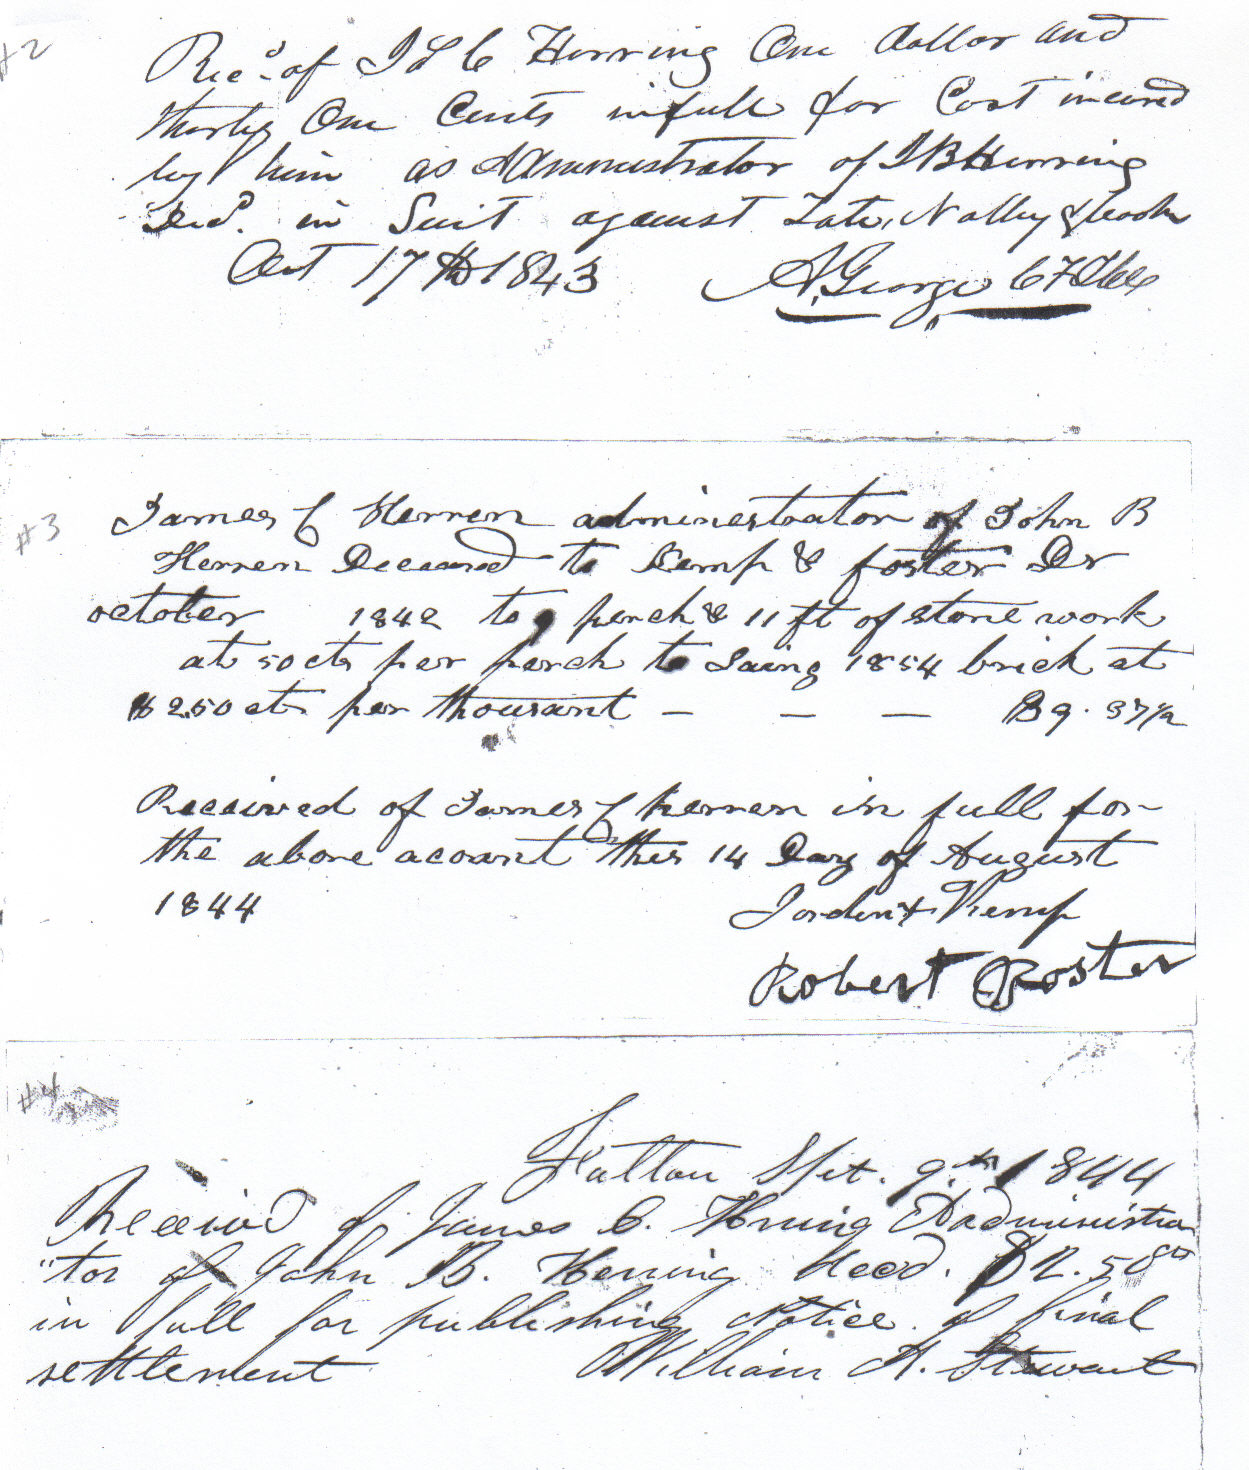 #2
Recd. of J & C Herring One dollar and
thirty One Cents in full for Cost incured
by him as Administrator of J B Herring
Decd. in Suit against Tate, Nolley &
Oct 17th 1843 A. George
#3
James C Herren administrator of John B
Herren Deceased to Kemp & foster Dr
october 1842 to 9 perch & 11 ft of stone work
at 50 cts per perch to Laing 1854 brick at
$2.50 cts per thousant — — — $9.37 1/2
Received of James C herren in full for
the above acount this 14 Day of August
1844 Jordin Kemp
Robert Foster
#4
Fulton Spt. 9th 1844
Received of James C. Herring Administra
"tor of John B. Herring decd. $2.50cts
in full for publishing Notice of final
settlement William A. Stewart